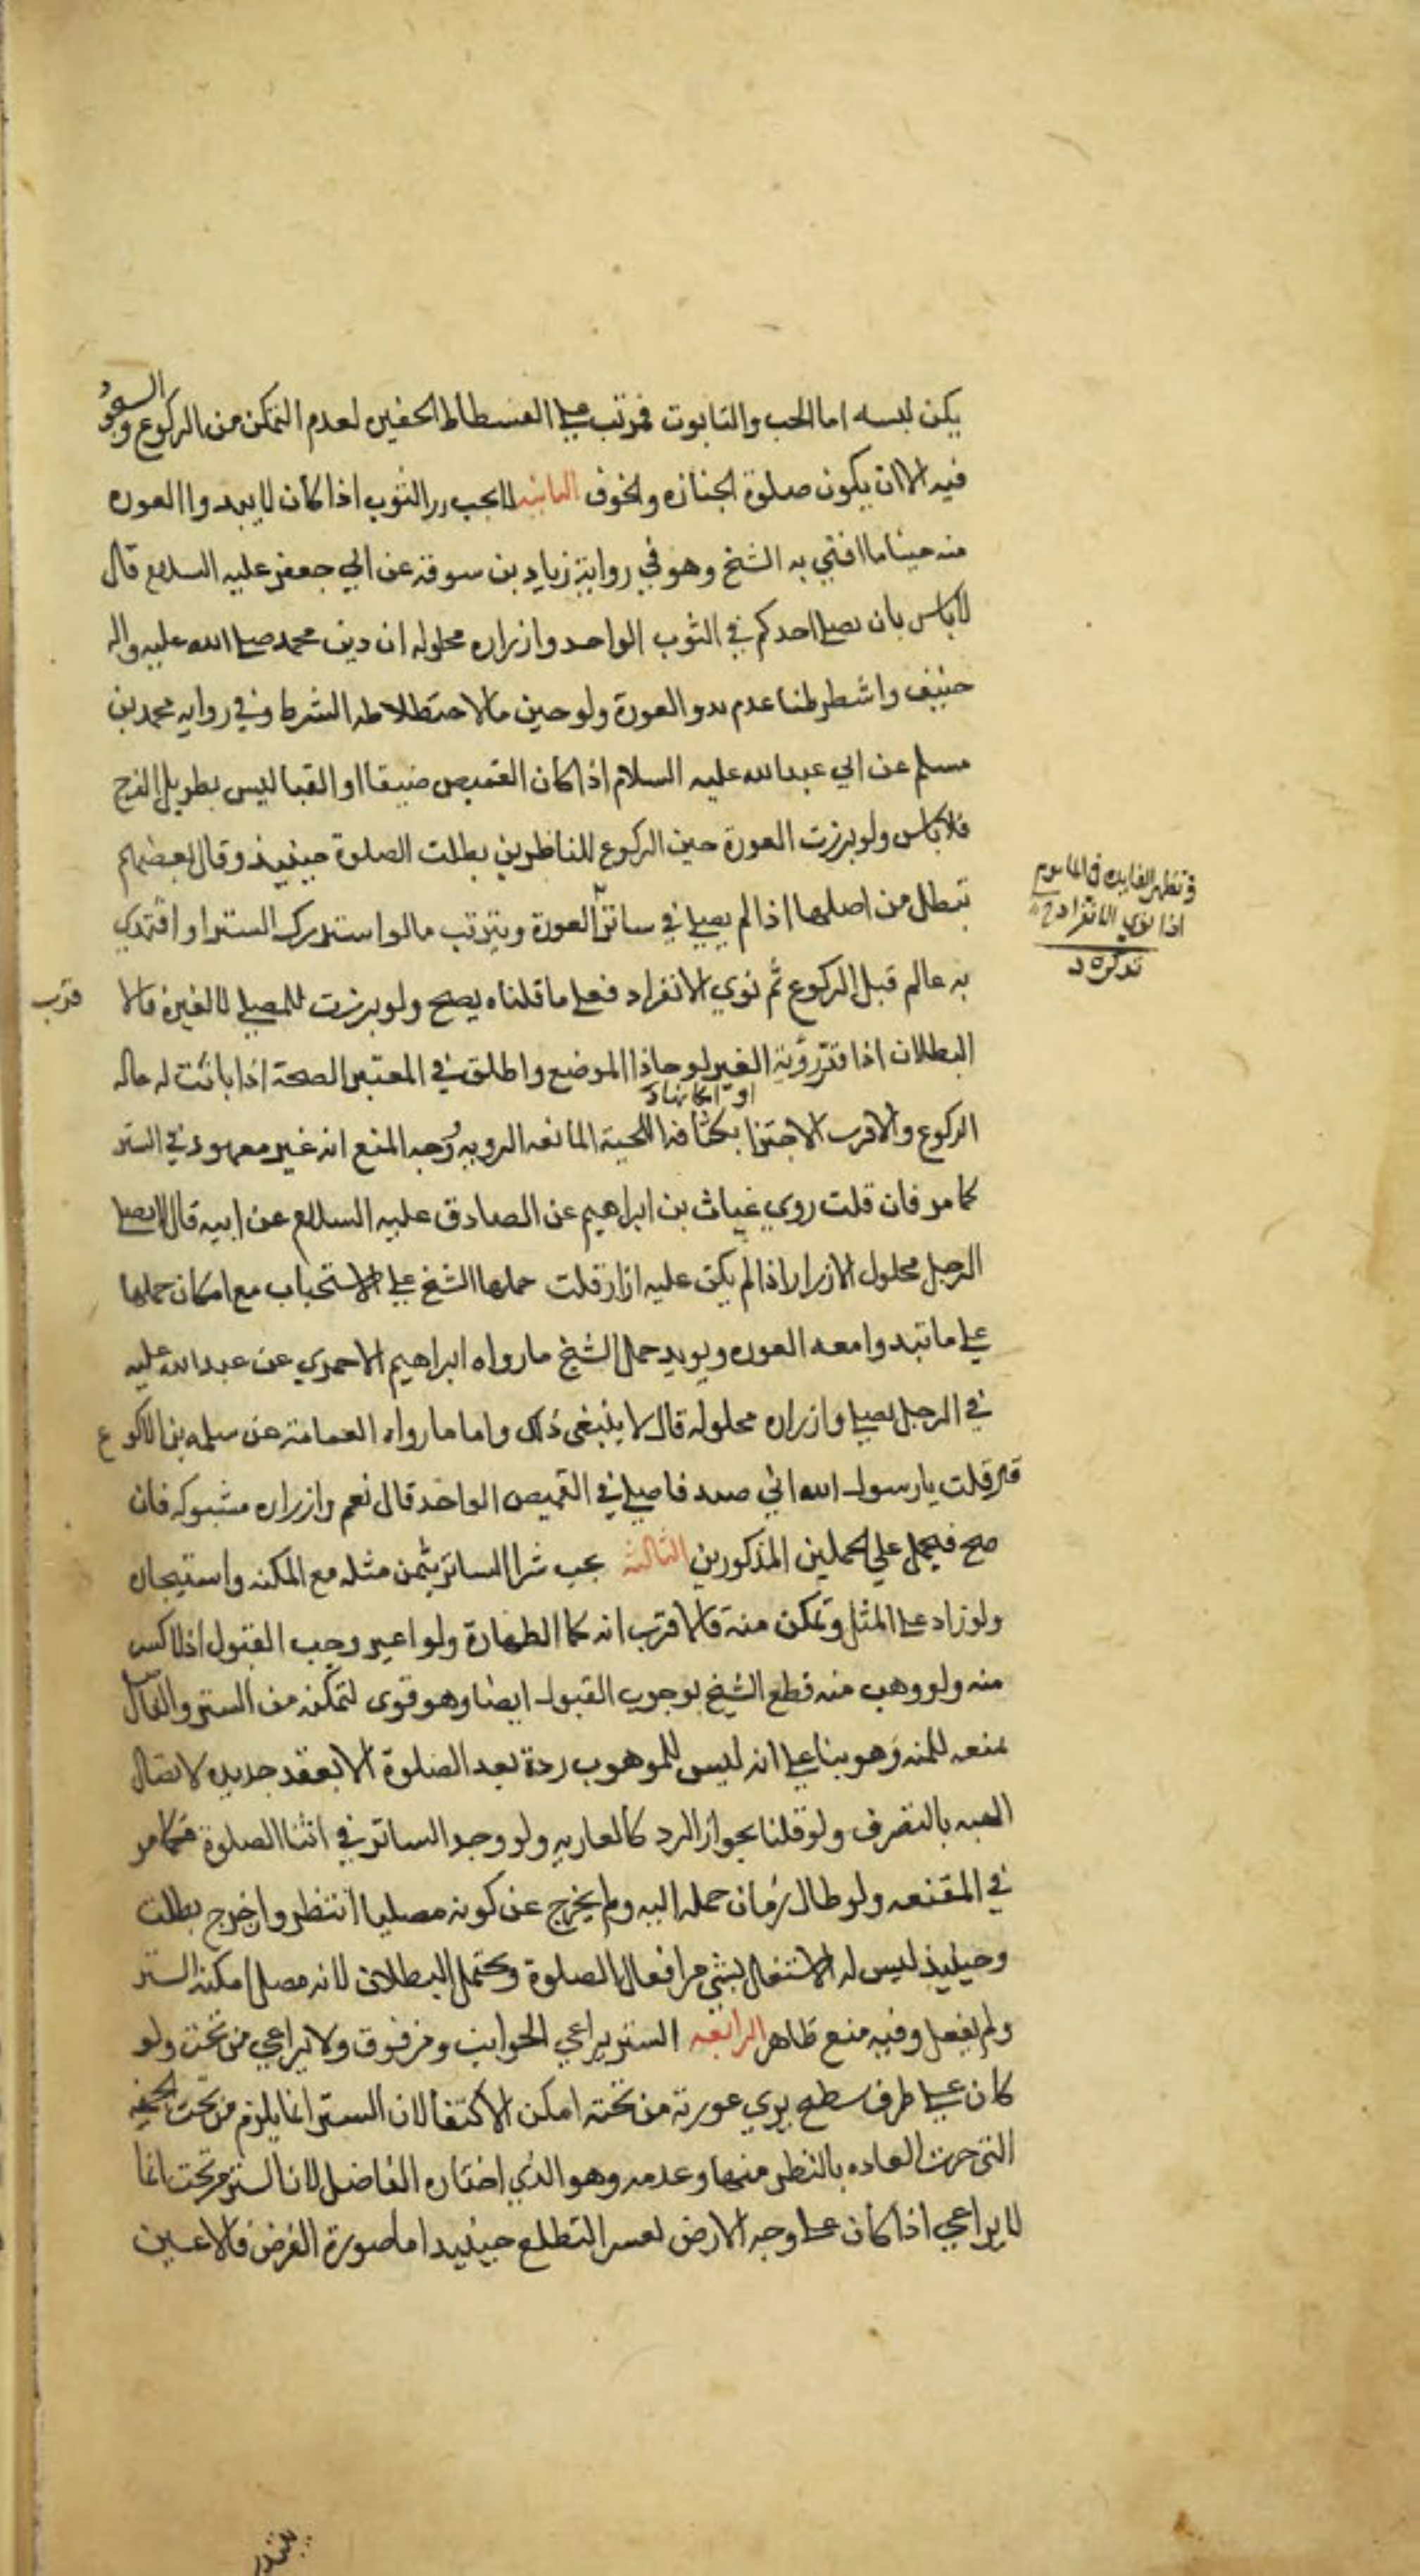 يكن لبسه اما الحب والتابوت فمرتب على الفسطاط الحفيره لعدم التمكن من الركوع والسجود
فيه الا ان يكون صلوة الجنازه والخوف الثانيه لا يجب زر الثوب اذا كان لا يبدوا العوره
منه حينئا ما افتى به الشيخ وهو في رواية زياد بن سوقة عن ابي جعفر عليه السلام قال
لا باس بان يصلي احدكم في الثوب الواحد وازراره محلوله ان دين محمد صلى الله عليه واله
حنيف واشطرطنا عدم بدو العورة ولو حين ما لا الشرط وفي روايه محمد بن
مسلم عن ابي عبد الله عليه السلام اذا كان القميص ضيقا او القبا ليس بطويل الفرج
فلا باس ولو برزت العورة حين الركوع للناظرين بطلت الصلوة حينيذ وقال بعضهم
تبطل من اصلها اذا لم يصلي في ساتر العورة ويترتب ما لو استدرك الستر او اقتدي
به عالم قبل الركوع ثم نوي الانفراد فعلى ما قلناه يصح ولو برزت للمصلي لا لغيره فالا
قرب
البطلان اذا قدر رؤية الغير لو حاذا الموضع واطلق في المعتبر الصحة اذا بانت له حاله
الركوع والاقرب الاجتزا بكثافة اللحية المانعه الرويه ووجه المنع انه غير معهود في الستر
كما مر فان قلت روي غياث بن ابراهيم عن الصادق عليه السلام عن ابيه قال لا يصلي
الرجل محلول الازرار اذا لم يكن عليه ازار قلت حملها الشيخ على الاستحباب مع امكان حملها
على ما تبدوا معه العوره ويويد حمل الشيخ ما رواه ابراهيم الاحمري عن عبد الله عليه
في الرجل يصلي وازراره محلوله قال لا ينبغي ذلك واما ما رواه العمامة عن سلمه بن الاكوع
قال قلت يا رسول الله اني صيد فاصلي في القميص الواحد قال نعم وازراره مشبوكه فان
صح فيحمل على الحملين المذكورين الثالثه يجب شرا الساتر بثمن مثله مع المكنه واستيجاره
ولو زاد على المثل وتمكن منه فالاقرب انه كما الطهارة ولو اعير وجب القبول اذ لا كسر
منه ولو وهب منه قطع الشيخ بوجوب القبول ايضا وهو قوى لتمكنه من الستر والفاضل
يمنعه للمنه وهو بنا على انه ليس للموهوب رده بعد الصلوة الا بعقد جديده لاتصال
الهبه بالتصرف ولو قلنا بجواز الرد كالعاريه ولو وجد الساتر في اثنا الصلوة فكما مر
في المقنعه ولو طال زمان حمله اليه ولم يخرج عن كونه مصليا انتظر وان خرج بطلت
وحينيذ ليس له الاشتغال بشي من افعال الصلوة ويحتمل البطلان لانه مصل امكنه الستر
ولم يفعل وفيه منع ظاهر الرابعه الستر يراعي الجوانب ومن فوق ولا يراعي من تحت ولو
كان على طرف سطح يري عورته من تحته امكن الاكتفا لان الستر انما يلزم من تحت الجهه
التي جرت العاده بالنظر منها وعدمه وهو الذي اختاره الفاضل لان الستر من تحت انما
لا يراعي اذا كان على وجه الارض لعسر التطلع حينيد اما صورة الفرض فالاعين
او امكانها
وتظهر الفايده في الماموم
اذا نوي الانفراد
تذكره